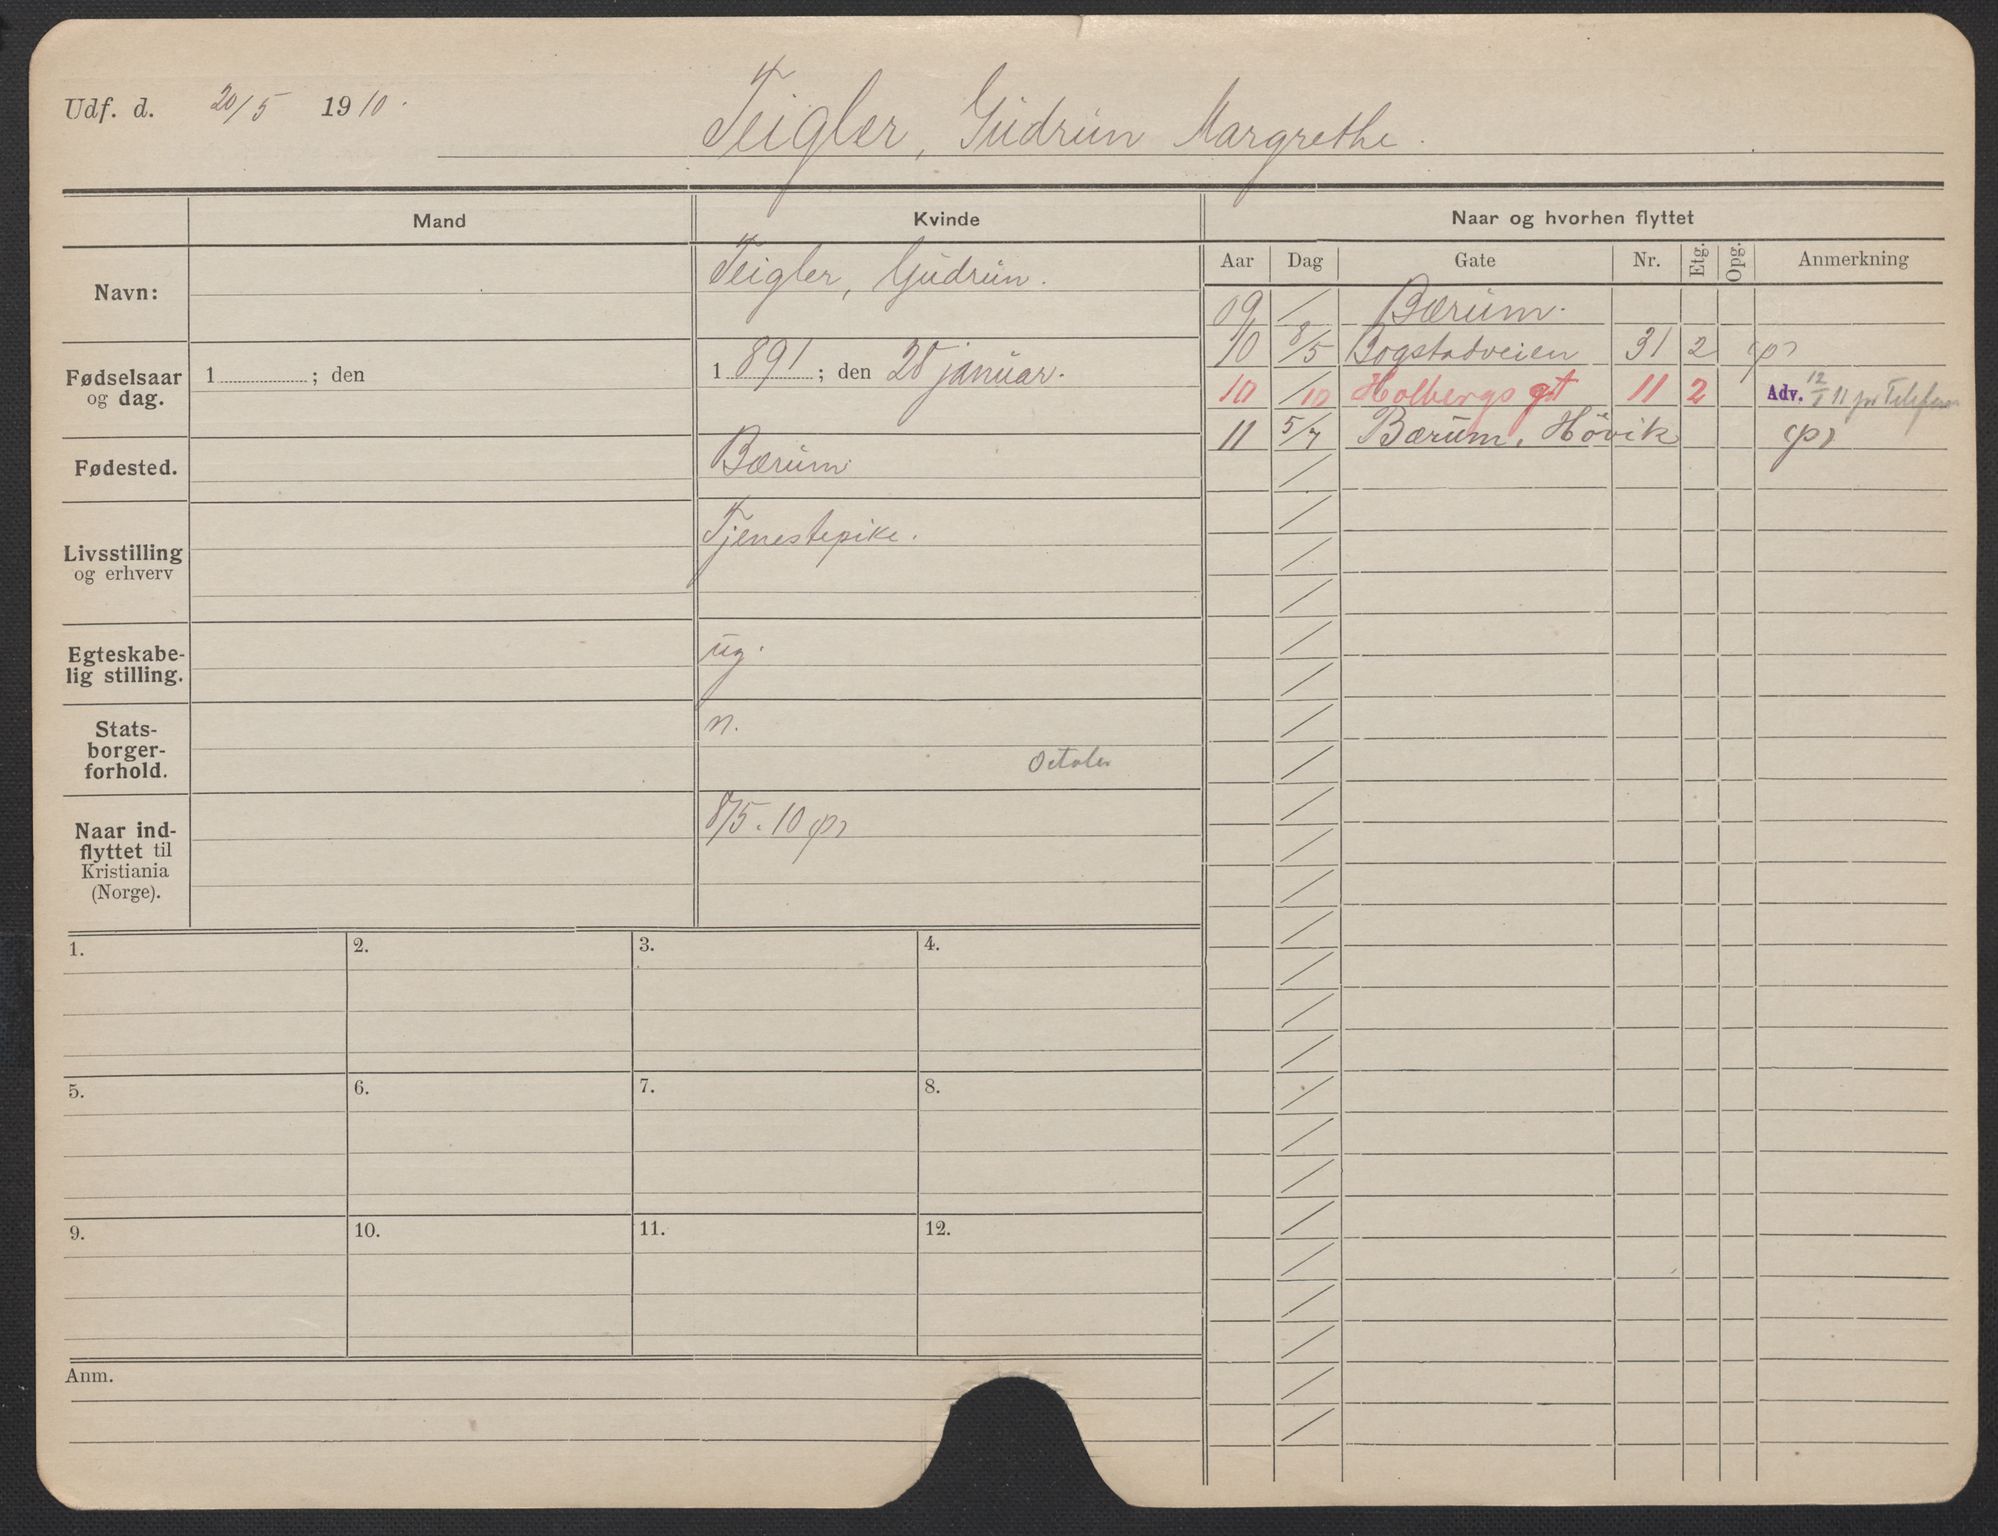 Udf. d. 20/5 1910.
Teigler, Gudrun Margrethe.
Mand
Kvinde
Naar og hvorhen flyttet
Navn:
Teigler, Gudrun.
Fødselsaar og dag.
1 ; den
1 891 ; den 28 januar.
Fødested.
Bærum
Livsstilling og erhverv
Tjenestepike.
Egteskabe-
lig stilling.
ug.
Stats-
borger-
forhold.
n.
October
Naar ind-
flyttet til
Kristiania
(Norge).
8/5. 10 (p)
Aar Dag Gate Nr. Etg. Opg. Anmerkning
09 / Bærum.
10 8/5 Bogstadveien 31 2 (p)
10 /10 Holbergs gt 11 2 Adv. 12/1 11 pr Telefon
11 5/7 Bærum, Hövik (p)
1. 2. 3. 4.
5. 6. 7. 8.
9. 10. 11. 12.
Anm.